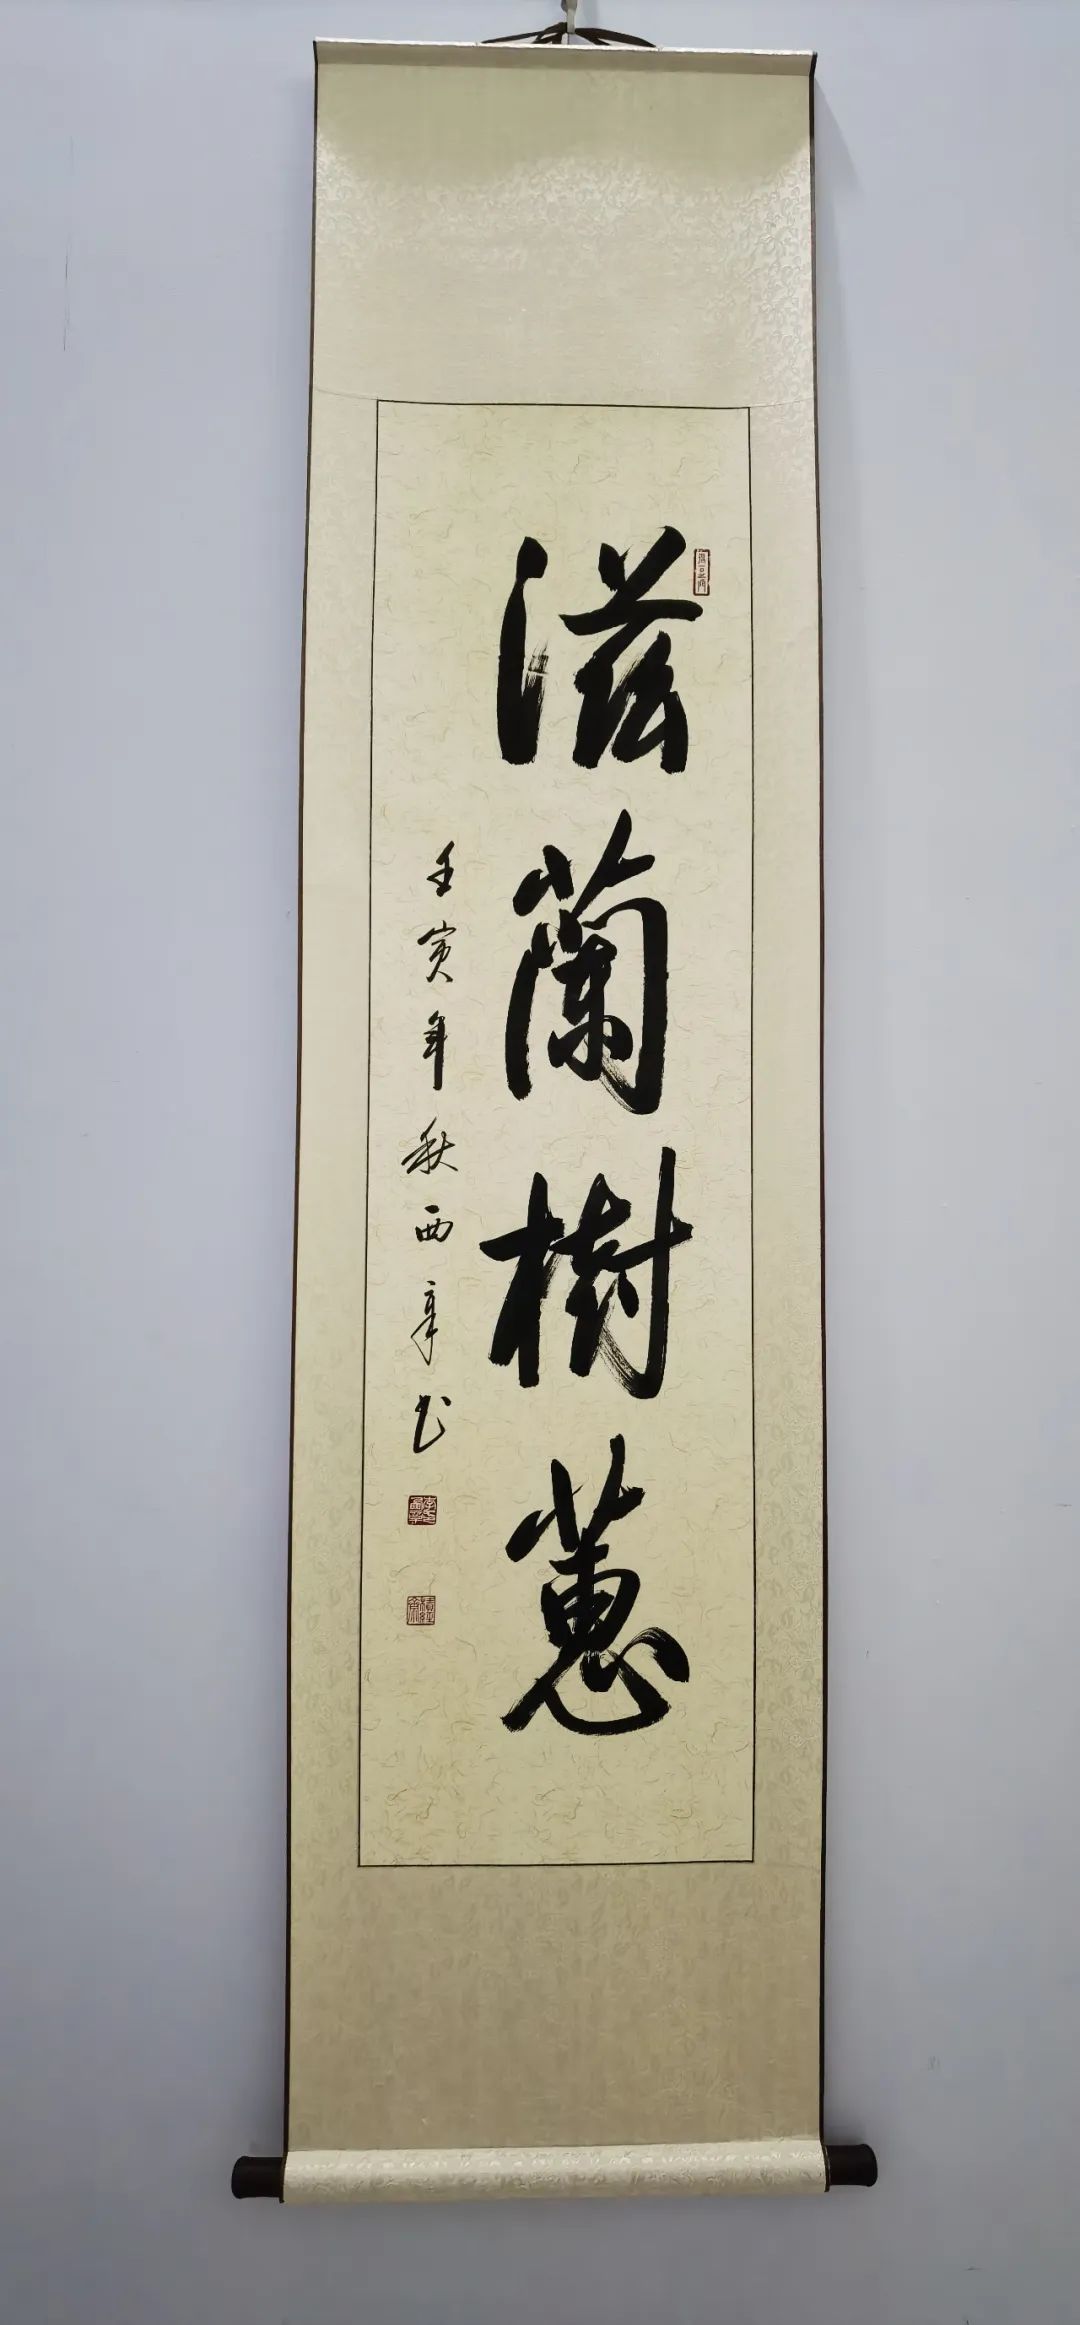 滋蘭樹蕙
壬寅年秋西章书